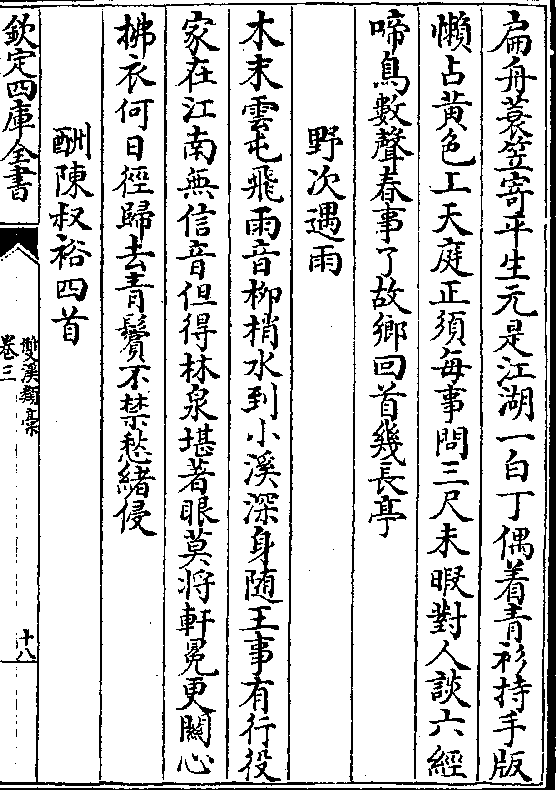 扁舟蓑笠寄平生元是江湖一白丁偶着青衫持手版
懶占黄色上天庭正須每事問三尺未暇對人談六經
啼鳥數聲春事了故鄉回首幾長亭
野次遇雨
木末雲屯飛雨音柳梢水到小溪深身随王事有行役
家在江南無信音但得林泉堪著眼莫將軒冕更關心
拂衣何日徑歸去青鬢不禁愁緒侵
酬陳叔裕四首
欽定四庫全書
雙溪類稾
卷三
十八